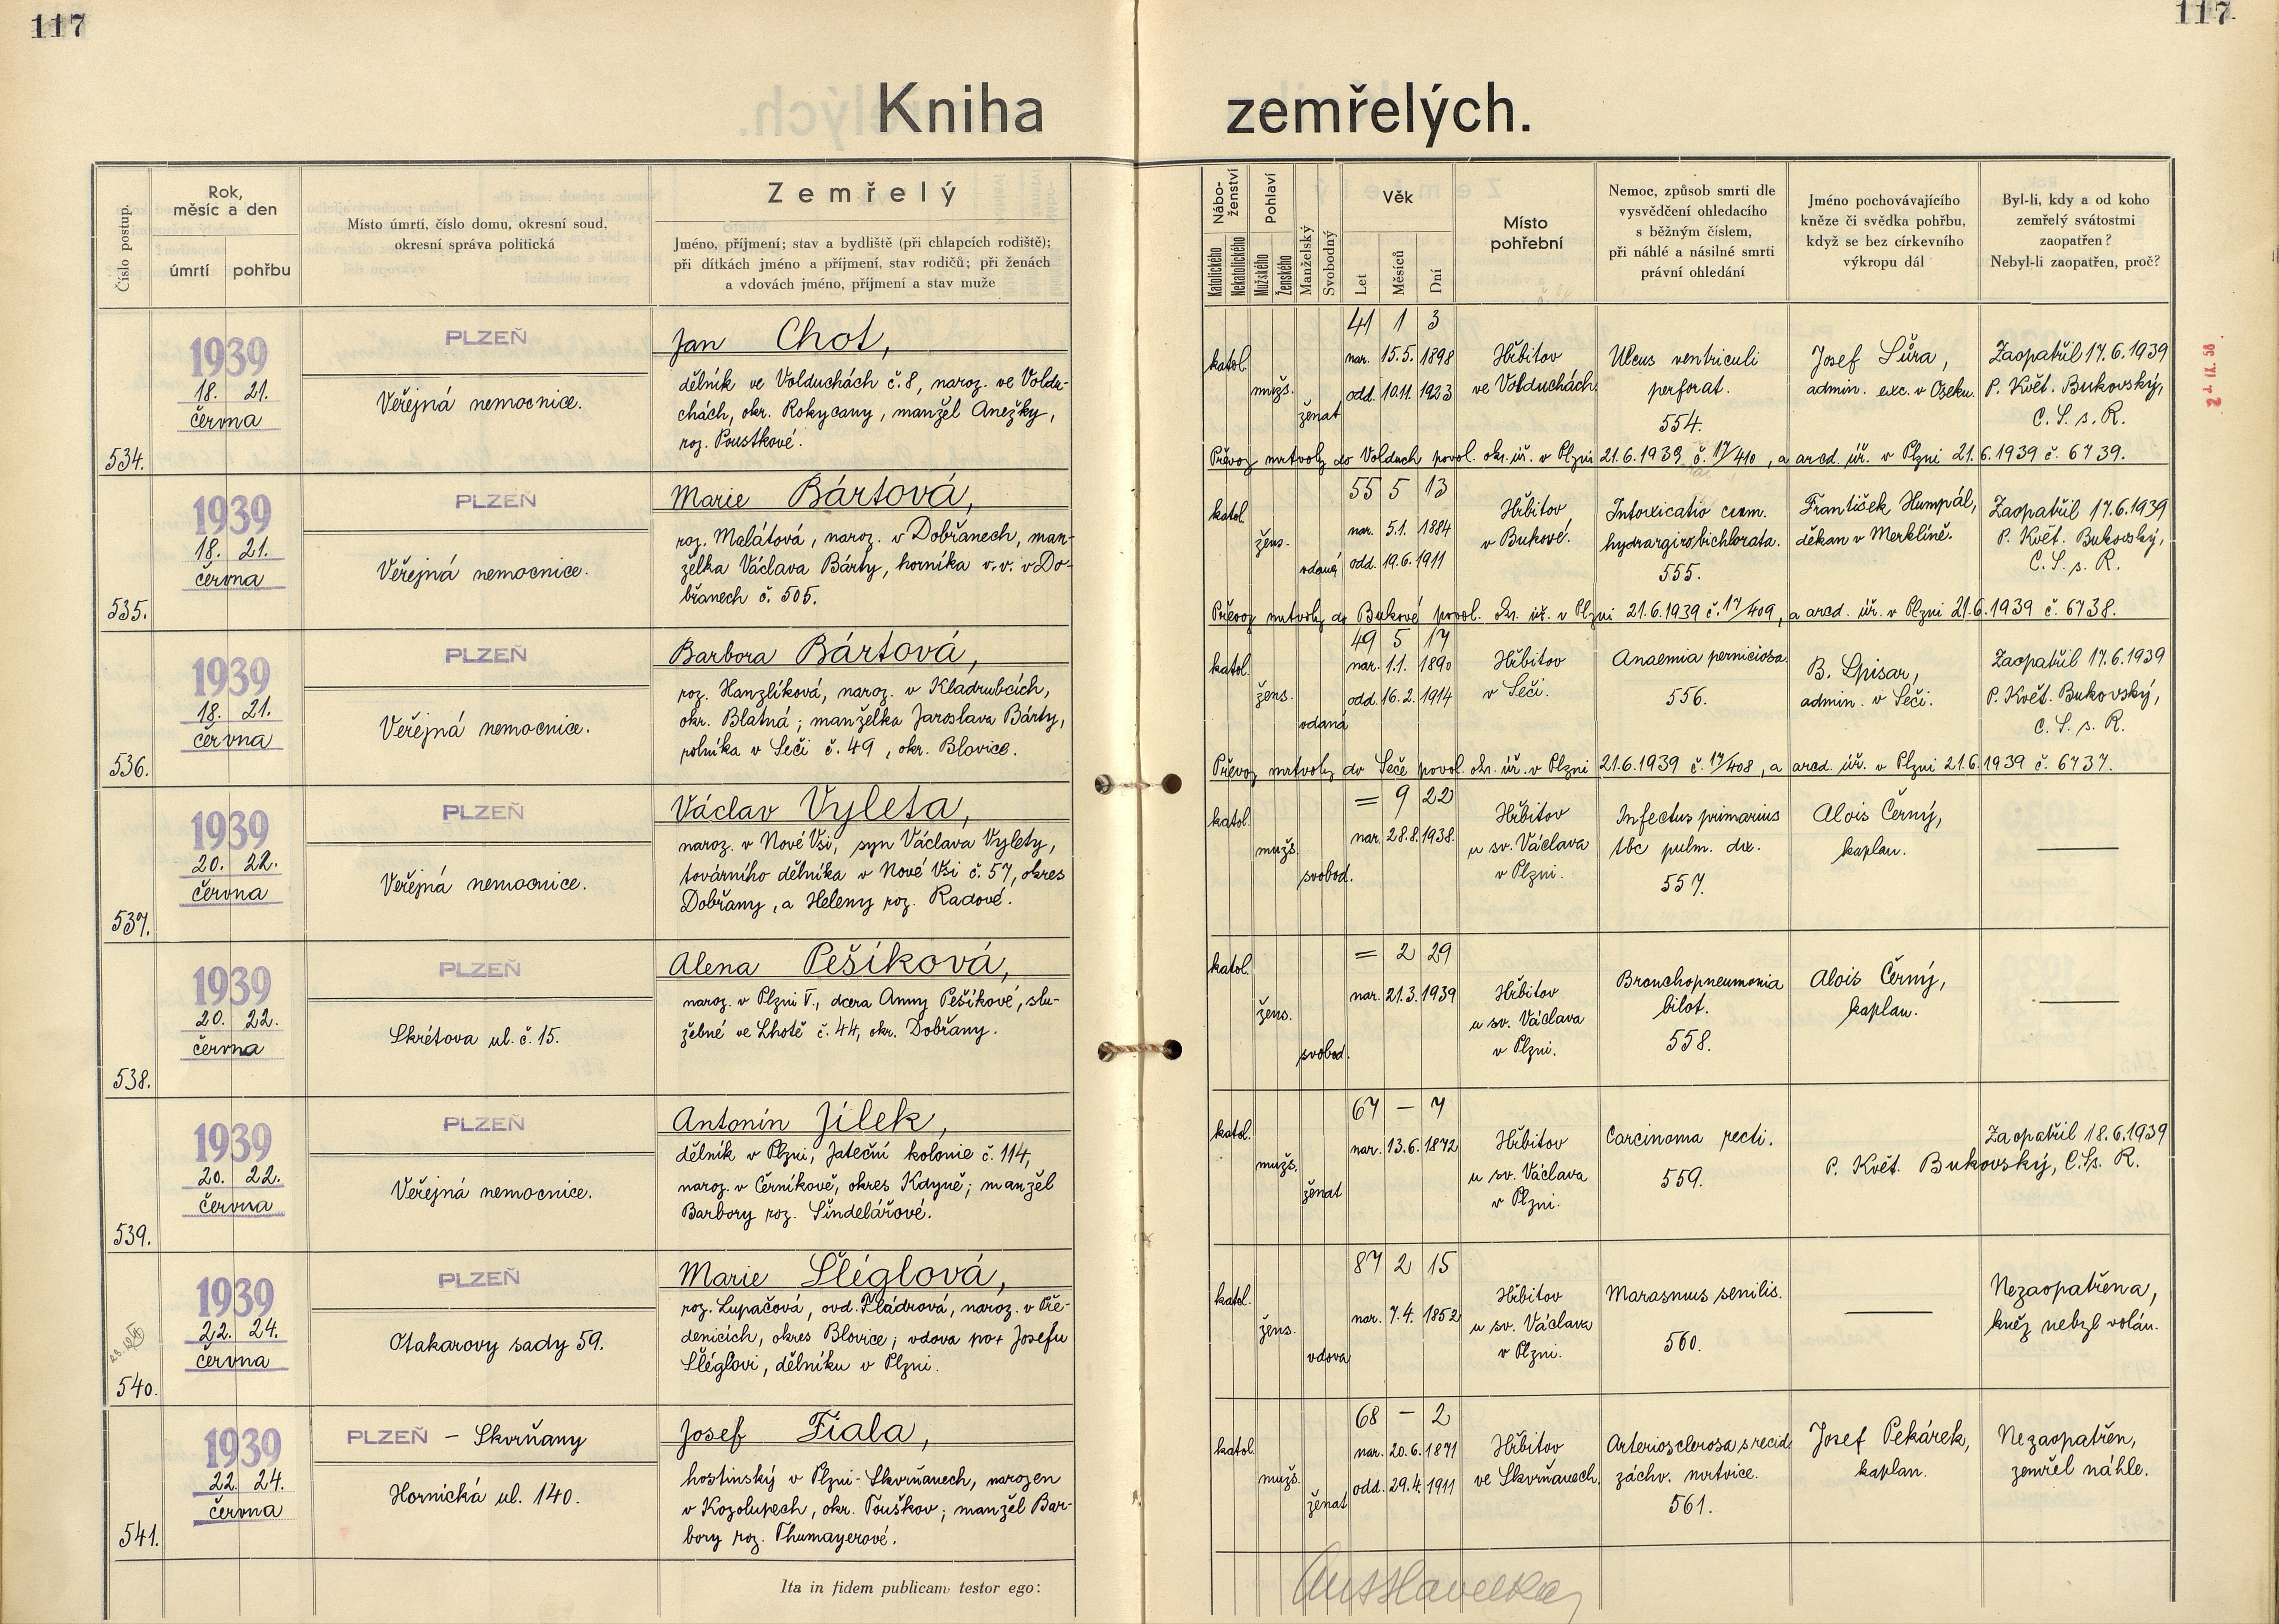 117
117
Kniha zemřelých.
Číslo postup.
Rok, měsíc a den
úmrtí
pohřbu
Místo úmrtí, číslo domu, okresní soud,
okresní správa politická
Zemřelý
Jméno, příjmení; stav a bydliště (při chlapcích rodiště);
při dítkách jméno a příjmení, stav rodičů; při ženách
a vdovách jméno, příjmení a stav muže
Nábo-ženství
Katolického
Nekatolického
Pohlaví
Mužského
Ženského
Manželský
Svobodný
Věk
Let
Měsíců
Dní
Místo
pohřební
Nemoc, způsob smrti dle
vysvědčení ohledacího
s běžným číslem,
při náhlé a násilné smrti
právní ohledání
Jméno pochovávajícího
kněze či svědka pohřbu,
když se bez církevního
výkropu dál
Byl-li, kdy a od koho
zemřelý svátostmi
zaopatřen?
Nebyl-li zaopatřen, proč?
534.
1939
18. 21.
června
PLZEŇ
Veřejná nemocnice.
Jan Chot,
dělník ve Volduchách č. 8, naroz. ve Voldu-
chách, okr. Rokycany, manžel Anežky,
roz. Poustkové.
katol.
mužs.
ženat
41 1 3
nar. 15.5. 1898
odd. 10.11. 1923
Hřbitov
ve Volduchách
Ulcus ventriculi
perforat.
554.
Josef Šůra,
admin. exc. v Oseku.
Zaopatřil 17.6.1939
P. Květ. Bukovský,
C. S. s. R.
Převoz mrtvoly do Volduch povol. okr. úř. v Plzni 21.6.1939 č. 17/410, a arcd. úř. v Plzni 21.6.1939 č. 6739.
535.
1939
18. 21.
června
PLZEŇ
Veřejná nemocnice.
Marie Bártová,
roz. Malátová, naroz. v Dobřanech, man-
želka Václava Bárty, horníka v. v. v Do-
břanech č. 505.
katol.
žens.
vdaná
55 5 13
nar. 5.1. 1884
odd. 19.6. 1911
Hřbitov
v Bukové.
Intoxicatio cum.
hydrargiro bichlorata.
555.
František Humpál,
děkan v Merklíně.
Zaopatřil 17.6.1939
P. Květ. Bukovský,
C. S. s. R.
Převoz mrtvoly do Bukové povol. okr. úř. v Plzni 21.6.1939 č. 17/409, a arcd. úř. v Plzni 21.6.1939 č. 6738.
536.
1939
18. 21.
června
PLZEŇ
Veřejná nemocnice.
Barbora Bártová,
roz. Hanzlíková, naroz. v Kladrubcích,
okr. Blatná; manželka Jaroslava Bárty,
rolníka v Seči č. 49, okr. Blovice.
katol.
žens.
vdaná
49 5 17
nar. 1.1. 1890
odd. 16.2. 1914
Hřbitov
v Seči.
Anaemia perniciosa.
556.
B. Spisar,
admin. v Seči.
Zaopatřil 17.6.1939
P. Květ. Bukovský,
C. S. s. R.
Převoz mrtvoly do Seče povol. okr. úř. v Plzni 21.6.1939 č. 17/408, a arcd. úř. v Plzni 21.6.1939 č. 6737.
537.
1939
20. 22.
června
PLZEŇ
Veřejná nemocnice.
Václav Vyleta,
naroz. v Nové Vsi, syn Václava Vylety,
továrního dělníka v Nové Vsi č. 57, okres
Dobřany, a Heleny roz. Radové.
katol.
mužs.
svobod.
= 9 22
nar. 28.8. 1938.
Hřbitov
u sv. Václava
v Plzni.
Infectus primarius
tbc pulm. dx.
557.
Alois Černý,
kaplan.
538.
1939
20. 22.
června
PLZEŇ
Skrétova ul. č. 15.
Alena Pešíková,
naroz. v Plzni V., dcera Anny Pešíkové, slu-
žebné ve Lhotě č. 44, okr. Dobřany.
katol.
žens.
svobod.
= 2 29
nar. 21.3. 1939
Hřbitov
u sv. Václava
v Plzni.
Bronchopneumonia
bilot.
558.
Alois Černý,
kaplan.
539.
1939
20. 22.
června
PLZEŇ
Veřejná nemocnice.
Antonín Jílek,
dělník v Plzni, Jateční kolonie č. 114,
naroz. v Černíkově, okres Kdyně; manžel
Barbory roz. Šindelářové.
katol.
mužs.
ženat
67 — 7
nar. 13.6. 1872
Hřbitov
u sv. Václava
v Plzni.
Carcinoma recti.
559.
Zaopatřil 18.6.1939
P. Květ. Bukovský, C. S. s. R.
540.
1939
22. 24.
června
PLZEŇ
Otakarovy sady 59.
Marie Šléglová,
roz. Lupačová, ovd. Fládrová, naroz. v Pře-
denicích, okres Blovice; vdova po + Josefu
Šléglovi, dělníku v Plzni.
katol.
žens.
vdova
87 2 15
nar. 7.4. 1852
Hřbitov
u sv. Václava
v Plzni.
Marasmus senilis.
560.
Nezaopatřena,
kněz nebyl volán.
541.
1939
22. 24.
června
PLZEŇ – Skvrňany
Hornická ul. 140.
Josef Fiala,
hostinský v Plzni-Skvrňanech, narozen
v Kozolupech, okr. Touškov; manžel Bar-
bory roz. Thumayerové.
katol.
mužs.
ženat
68 — 2
nar. 20.6. 1871
odd. 29.4. 1911
Hřbitov
ve Skvrňanech.
Arteriosclerosa s recid.
záchv. mrtvice.
561.
Josef Pekárek,
kaplan.
Nezaopatřen,
zemřel náhle.
Ita in fidem publicam testor ego: